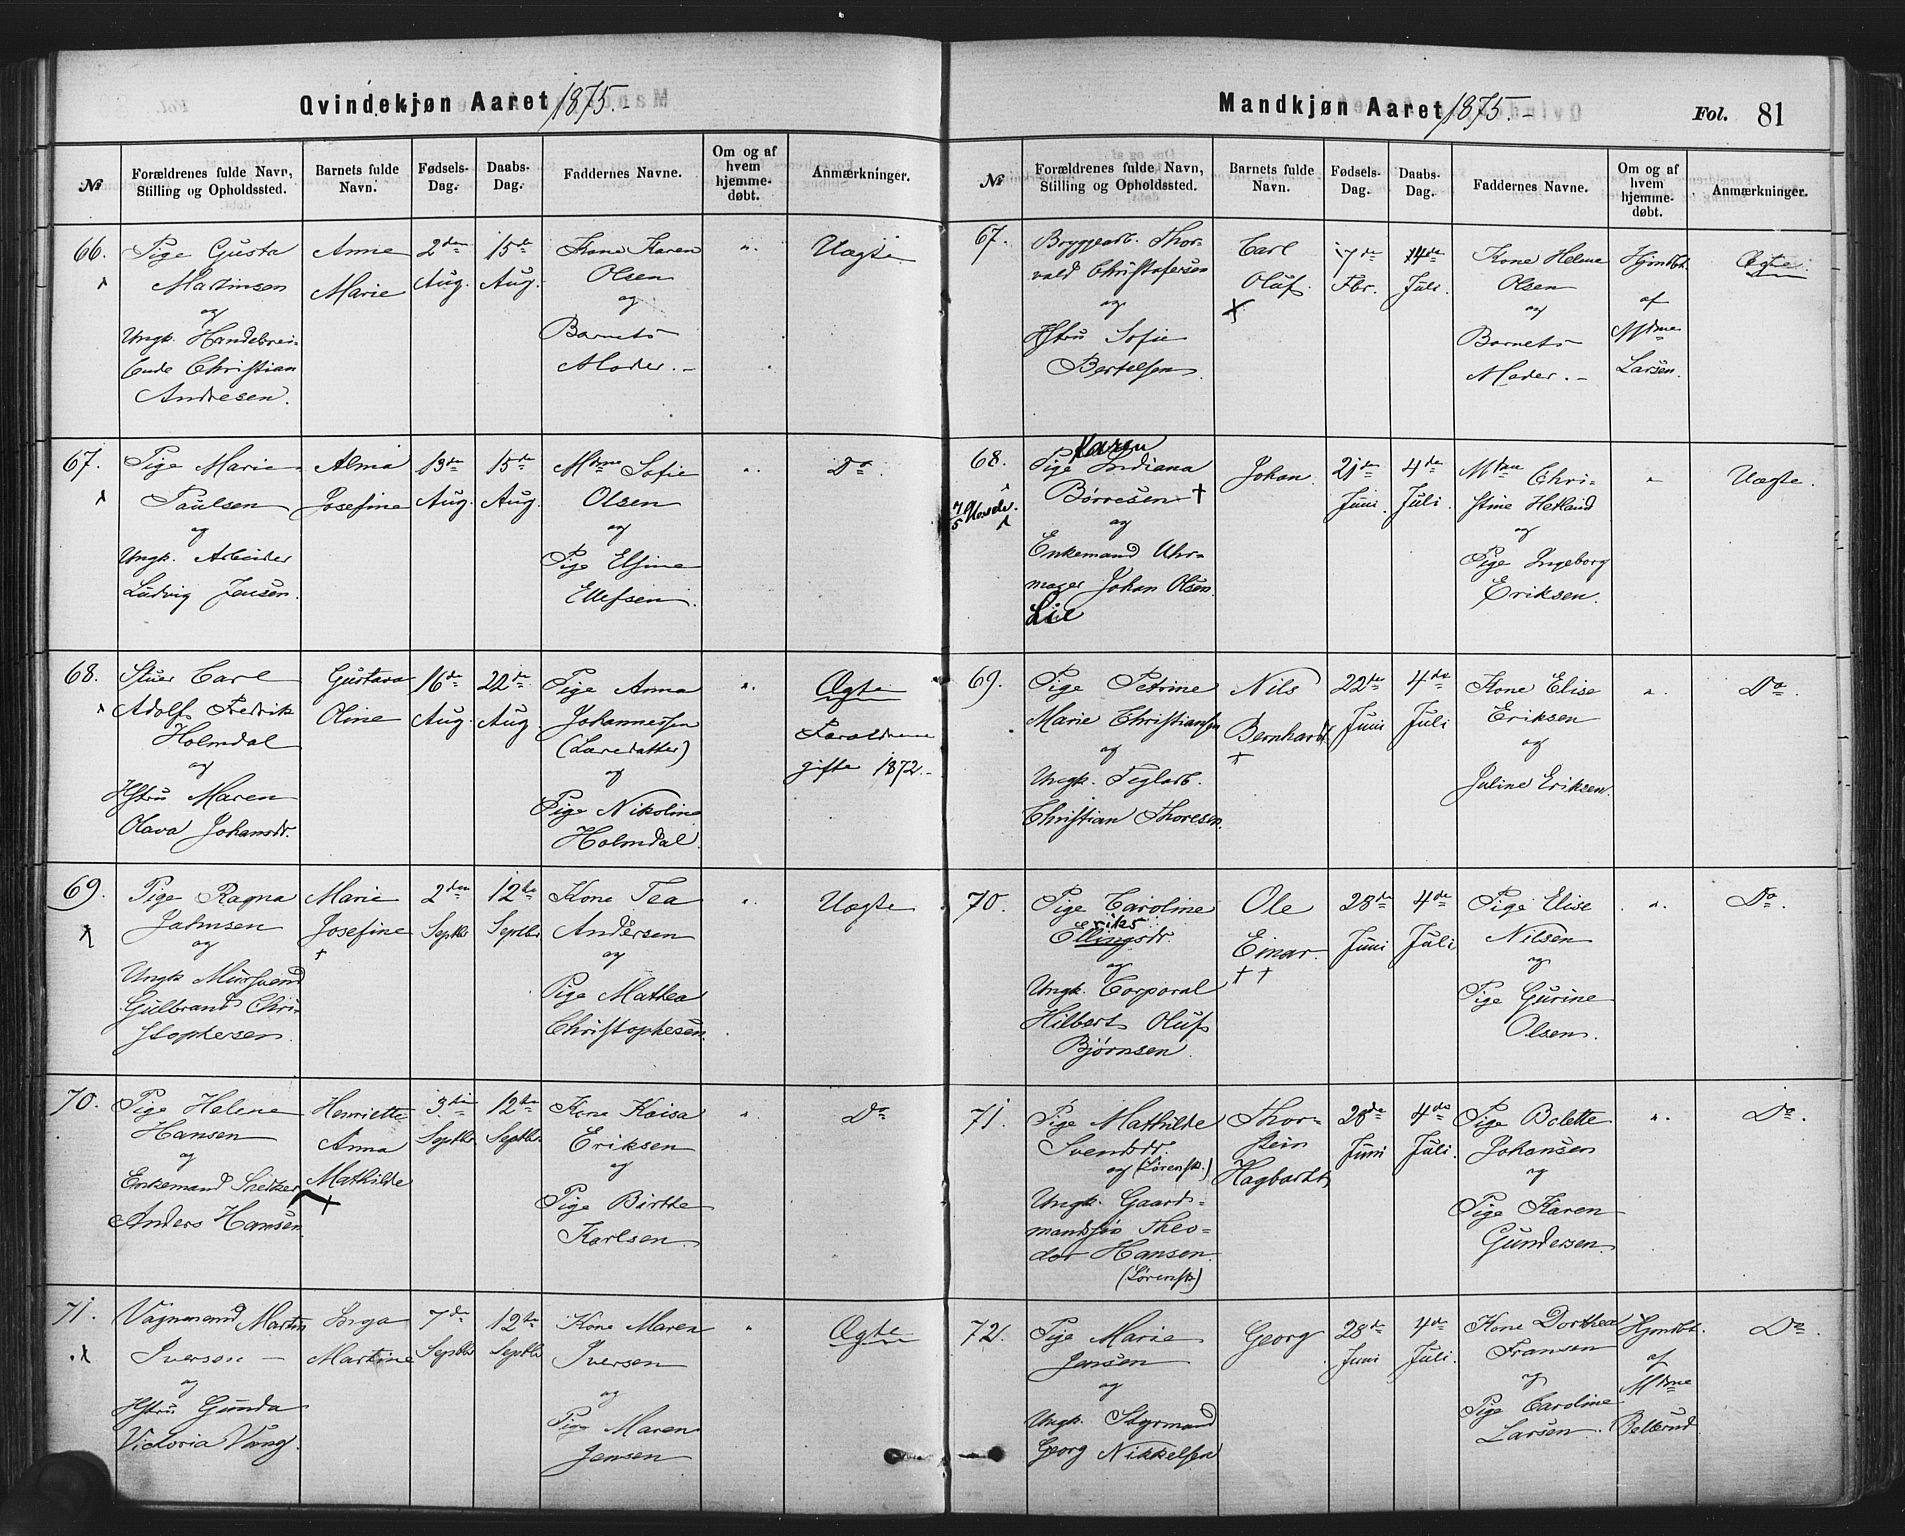 Qvindekjøn Aaret 1875.
№
Forældrenes fulde Navn, Stilling og Opholdssted.
Barnets fulde Navn.
Fødsels-Dag.
Daabs-Dag.
Faddernes Navne.
Om og af hvem hjemme-døbt.
Anmærkninger.
66.
Pige Gusta
Martinsen
og
Ungk. Handsbrei-
Christian
Andresen.
Anne
Marie
2den
Aug.
15de
Aug.
Kone Karen
Olsen
og
Barnets
Moder.
"
Uægte
67.
Pige Marie
Paulsen
og
Ungk. Arbeider
Ludvig Jensen.
Alma
Josefine
13de
Aug.
15de
Aug.
Mdme Sofie
Olsen
og
Pige Elsine
Ellefsen.
"
Do.
68.
Stuer Carl
Adolf Fredrik
Holmdal
og
Hstru Maren
Olava Johansdr.
Gustava
Oline
16de
Aug.
22de
Aug.
Pige Anna
Johannessen
og
Pige Nikoline
Holmdal.
"
Ægte
Forældrene
gifte 1872.
69.
Pige Ragna
Jahnsen
og
Ungk. Mursvend
Gulbrand Chri-
stophersen.
Marie
Josefine
+
2den
Septbr
12te
Septbr
Kone Tea
Andersen
og
Pige Mathea
Christophesen.
"
Uægte
70.
Pige Helene
Hansen
og
Enkemand Snedker
Anders Hansen.
Henriette
Anna
Mathilde
+
3die
Septbr
12te
Septbr
Kone Kaisa
Eriksen
og
Pige Birthe
Karlsen.
"
Do
71.
Vognmand Martin
Iversen
og
Hstru Gunda
Victoria Vang.
Inga
Martine
7de
Septbr
12te
Septbr
Kone Maren
Iversen
og
Pige Maren
Jensen
"
Ægte
Mandkjøn Aaret 1875.
Fol. 81
№
Forældrenes fulde Navn, Stilling og Opholdssted.
Barnets fulde Navn.
Fødsels-Dag.
Daabs-Dag.
Faddernes Navne.
Om og af hvem hjemme-døbt.
Anmærkninger.
67.
Bryggearb. Thor-
vald Christofersen
og
Hstru Sofie
Bertelsen.
Carl
Oluf.
7de
Fbr.
14de
Juli.
Kone Helene
Olsen
og
Barnets
Moder.
Hjmdbt.
af
Mdme
Larsen.
Ægte.
68.
Karen
Pige Indiana
Børresen +
og
Enkemand Uhr-
mager Johan Olsen.
Lie
Johan.
21de
Juni.
4de
Juli.
Mdm Chri-
stine Hetland
og
Pige Ingeborg
Eriksen.
"
Uægte.
69.
Pige Petrine
Marie Christiansen
og
Ungk. Teglarb.
Christian Thoresen.
Nils
Bernhardt.
+
22de
Juni
4de
Juli
Kone Elise
Eriksen
og
Juline Eriksen.
"
Do.
70.
Pige Caroline
riks
Ellingsdr.
og
Ungk. Corporal
Hilbert Oluf
Bjørnsen.
Ole
Einar.
+ +
28de
Juni
4de
Juli
Pige Elise
Nilsen
og
Pige Gurine
Olsen.
"
Do.
71.
Pige Mathilde
Svendsdr.
og (Lørensk.)
Ungk. Gaard-
mandssøn Theo-
dor Hansen.
(Lørensk)
Thor-
stein
Hagbardt.
28de
Juni
4de
Juli.
Pige Bolette
Johansen
og
Pige Karen
Gundersen.
"
Do.
72.
Pige Marie
Jensen
og
Ungk. Styrmand
Georg Nikkelsen
Georg
28de
Juni
4de
Juli.
Kone Dorthea
Fransen
og
Pige Caroline
Larsen.
Hjmdbt.
af
Mdme
Do.